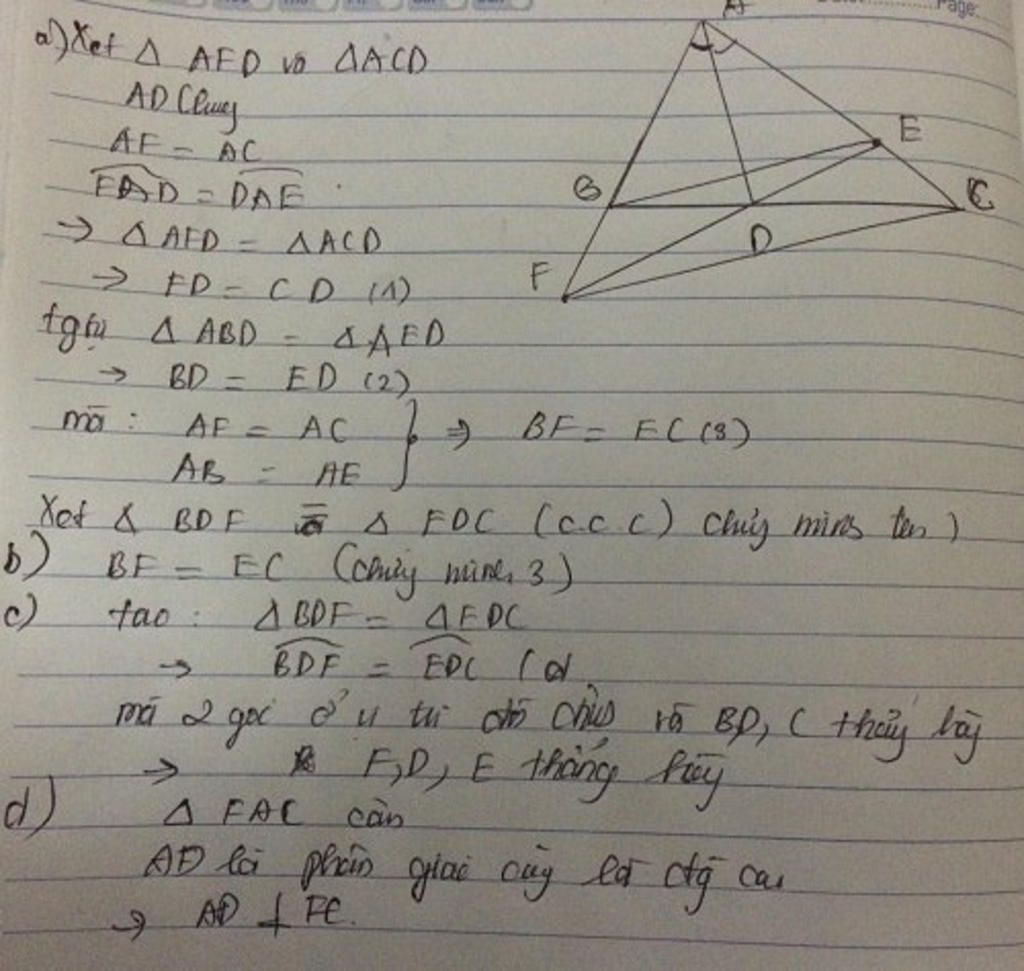 a) Xet Δ AFD và ΔACD
AD Chung
AF = AC
FAD = DAE
→ Δ AFD = ΔACD
→ FD = CD (1)
tgtự Δ ABD = ΔAED
→ BD = ED (2)
mà : AF = AC
AB = AE
} ⇒ BF = EC (3)
Xet Δ BDF = Δ EDC (c.c.c) chứng minh trên)
b) BF = EC (chứng minh 3)
c) ta có : ΔBDF = ΔEDC
→ BDF = EDC (đ
mà 2 góc ở vị trí đối đỉnh và BD, C thẳng hàng
→ F, D, E thẳng hàng
d) Δ FAC cân
AD là phân giác cũng là đg cao
→ AD ⊥ FC.
A
B
C
D
E
F
Page: